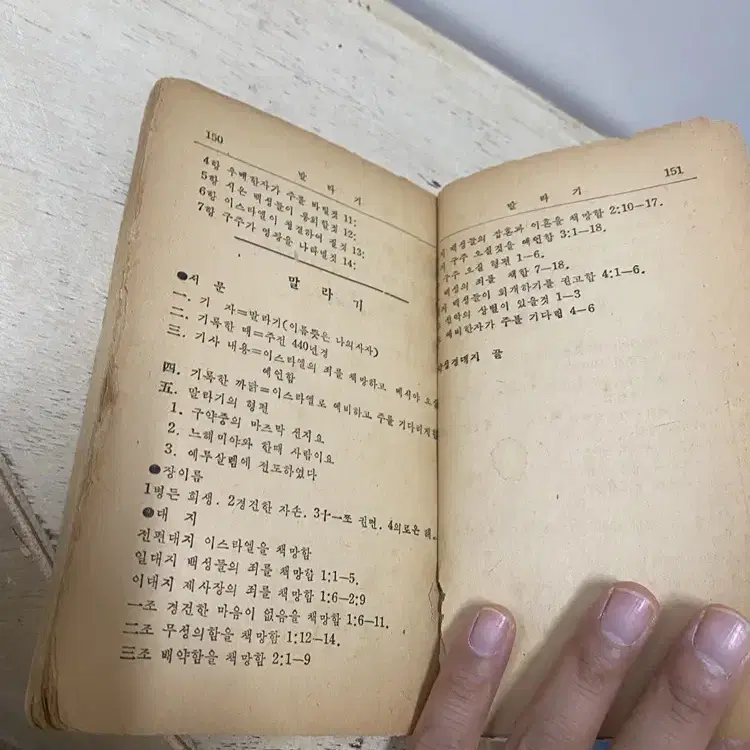 150
말 라 기
4항 우매한자가 주를 바릴것 11:
5항 시온 백성들이 통회할것 12:
6항 이스라엘이 청결하여 질것 13:
7항 구주가 영광을 나타낼것 14:
말 라 기
●서 문
一. 기 자=말라기(이름뜻은 나의사자)
二. 기록한 때=주전 440년경
三. 기사 내용=이스라엘의 죄를 책망하고 메시아 오실
예언함
四. 기록한 까닭=이스라엘로 예비하고 주를 기다리게함
五. 말라기의 형편
1. 구약중의 마즈막 선지요
2. 느헤미야와 한때 사람이요
3. 예루살렘에 전도하였다
●장이름
1병든 희생. 2경건한 자손. 3十一쪼 권면. 4의로운 해.
●대 지
전편대지 이스라엘을 책망함
일대지 백성들의 죄를 책망함 1:1—5.
이대지 제사장의 죄를 책망함 1:6—2:9
一조 경건한 마음이 없음을 책망함 1:6—11.
二조 무정의함을 책망함 1:12—14.
三조 배약함을 책망함 2:1—9
말 라 기
151
백성들의 잡혼과 이혼을 책망함 2:10—17.
구주 오실것을 예언함 3:1—18.
구주 오실 형편 1—6.
백성의 죄를 책함 7—18.
백성들이 회개하기를 권고함 4:1—6.
선악의 상벌이 있을것 1—3
예비한자가 주를 기다림 4—6
성경대지 끝